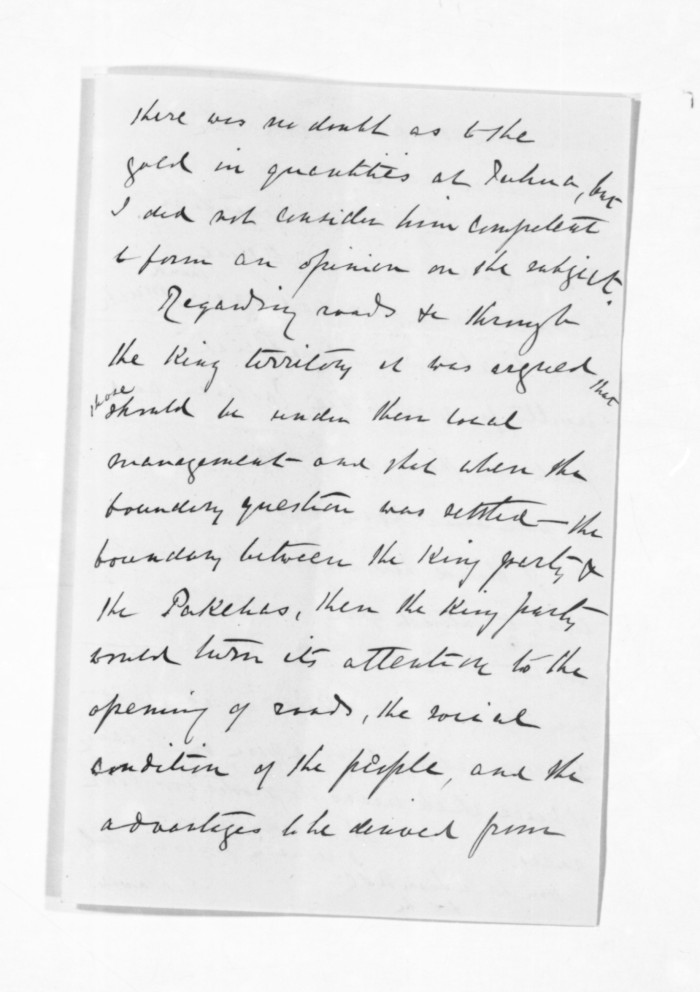 there was no doubt as to the
gold in quantities at Tuhua, but
I did not consider him competent
to form an opinion on the subject.
Regarding roads &c through
the King territory it was argued that
those should be under their local
management and that when the
boundary question was settled — the
boundary between the King party &
the Pakehas, then the King party
would turn its attention to the
opening of roads, the social
condition of the people, and the
advantages to be derived from